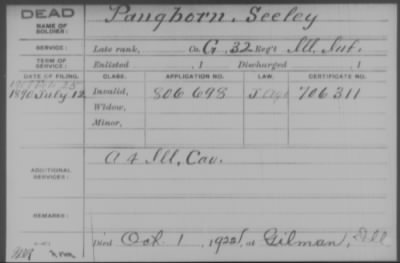 DEAD
NAME OF SOLDIER: Pangborn, Seeley
SERVICE: Late rank, Co. G, 32 Reg't Ill. Inf.
TERM OF SERVICE: Enlisted , 1 Discharged , 1
DATE OF FILING. CLASS. APPLICATION NO. LAW. CERTIFICATE NO.
1890 July 12 Invalid, 806698 706311
Widow,
Minor,
ADDITIONAL SERVICES: A 4 Ill. Cav.
REMARKS:
Died Oct. 1, at Gilman, Ill